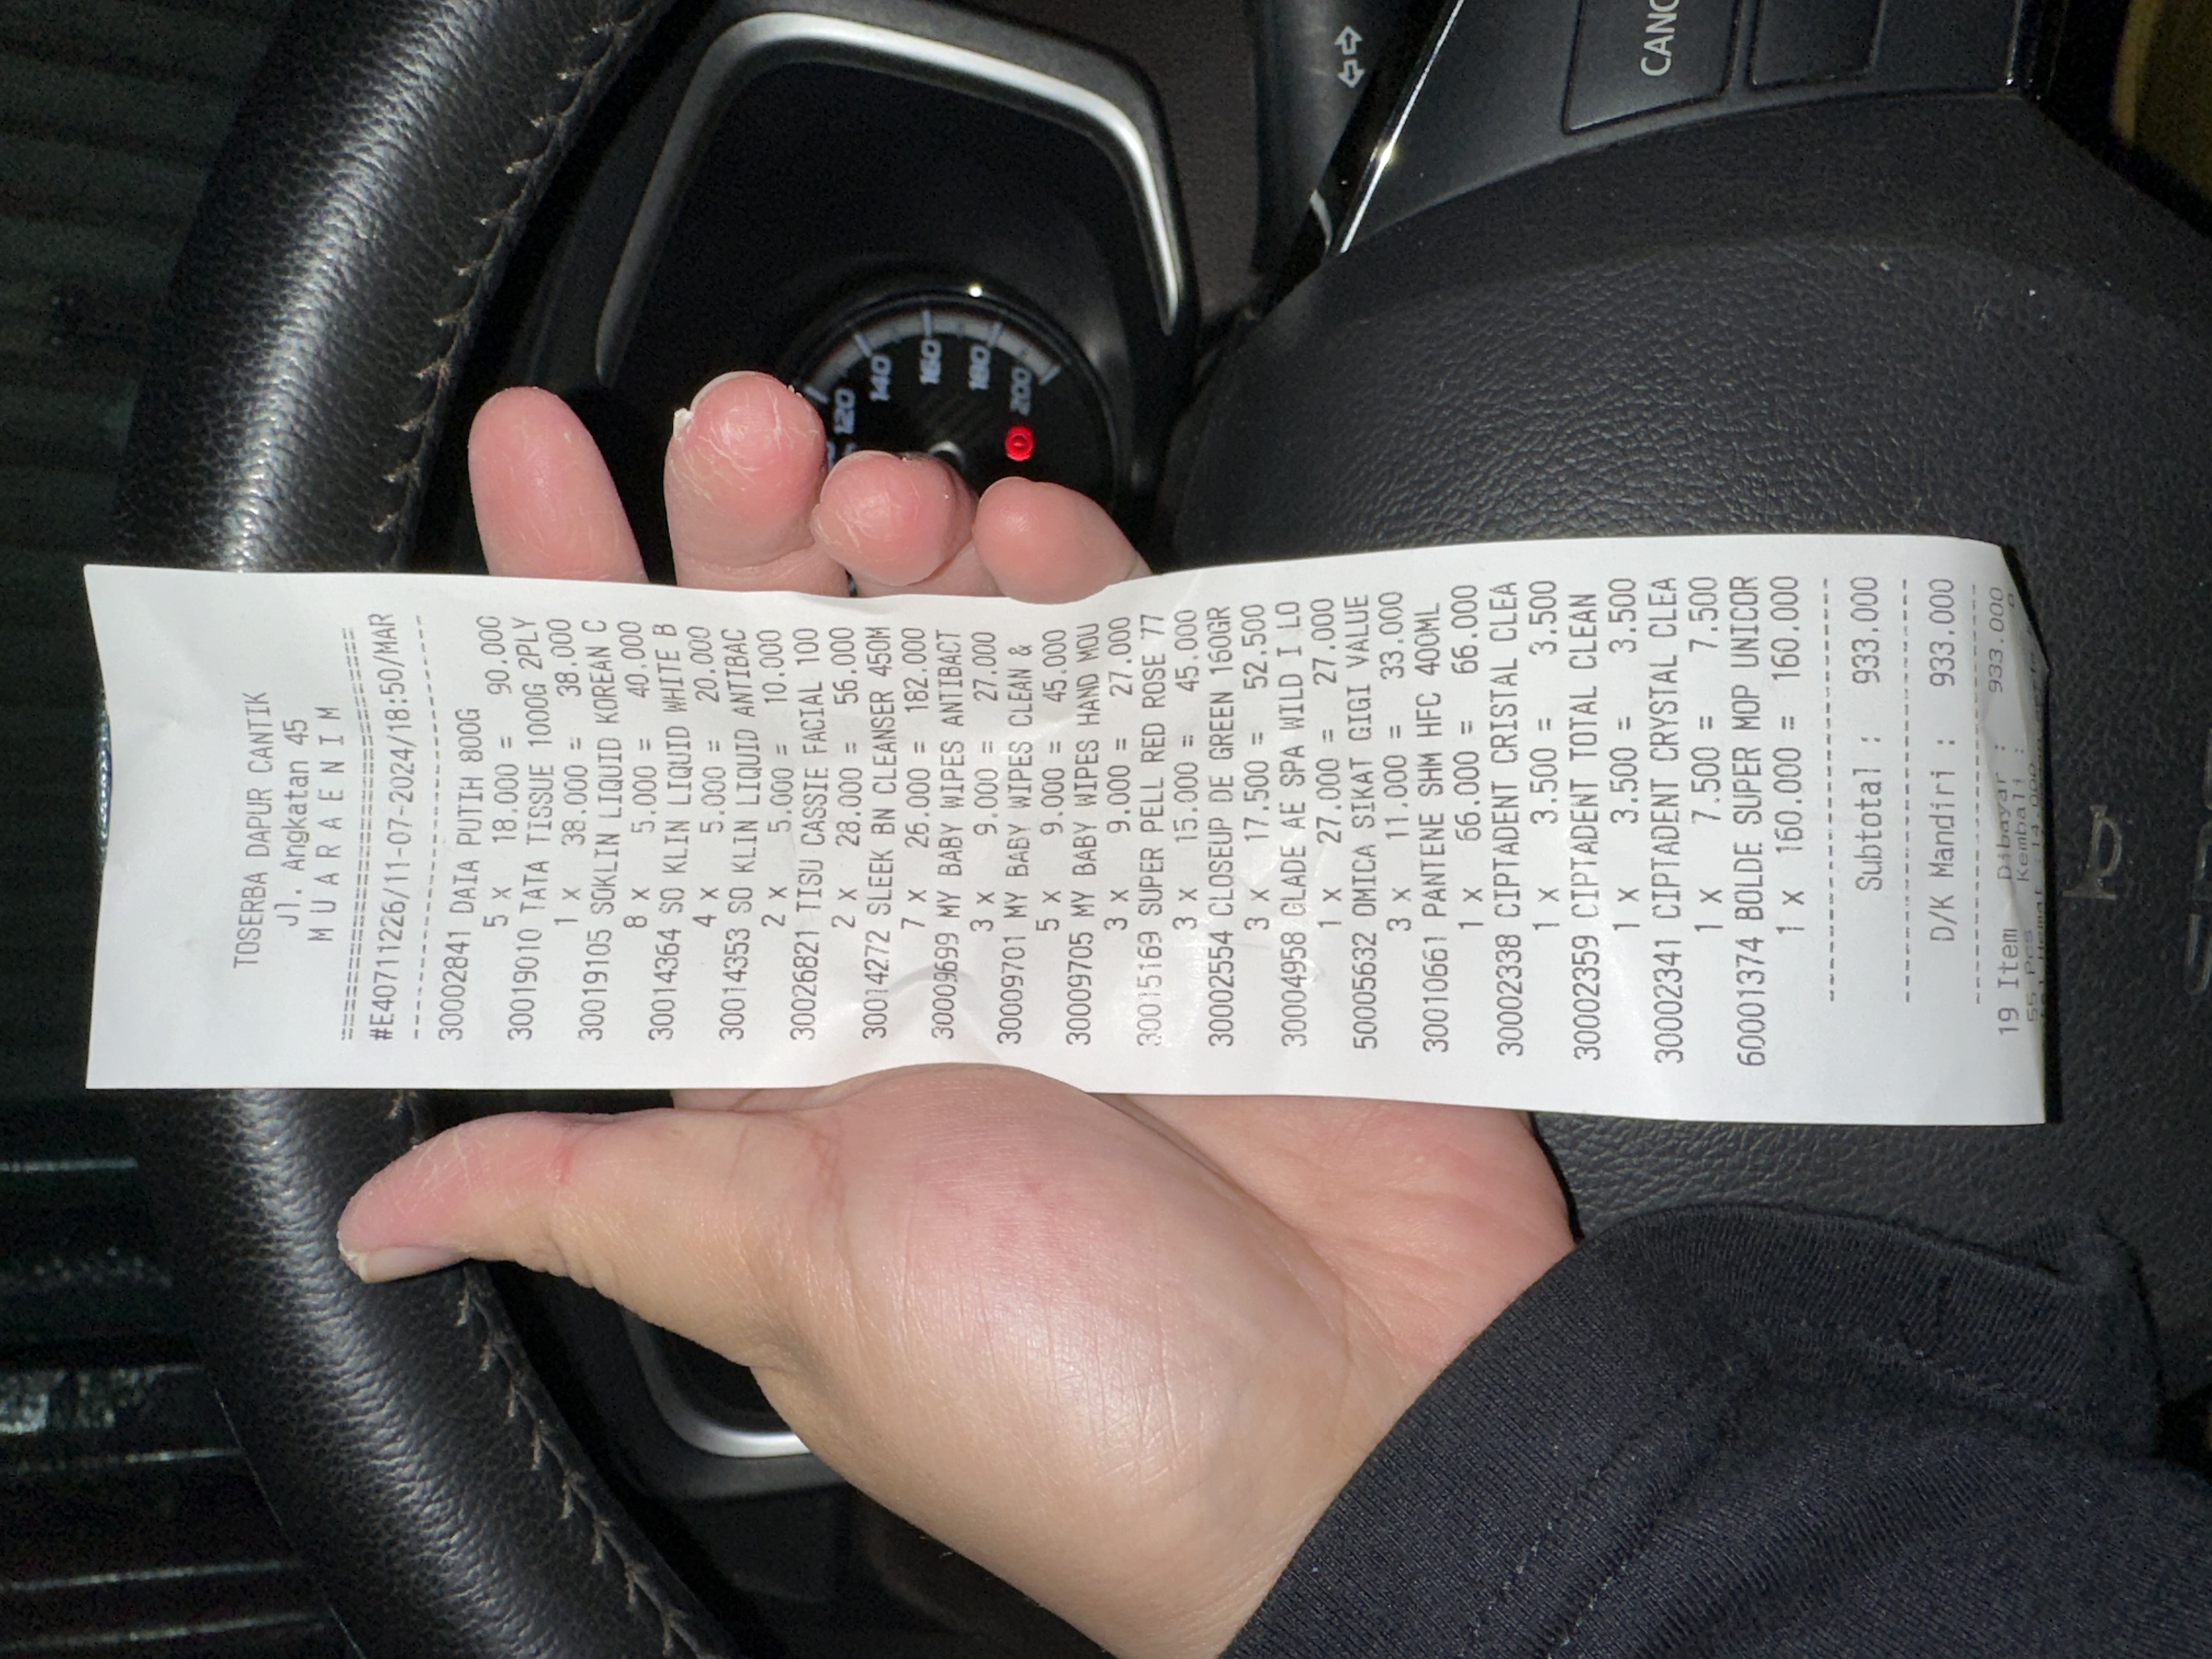 TOSERBA DAPUR CANTIK
Jl. Angkatan 45
M U A R A E N I M
================================
#E40711226/11-07-2024/18:50/MAR
--------------------------------
30002841 DAIA PUTIH 800G
5 x 18.000 = 90.000
30019010 TATA TISSUE 1000G 2PLY
1 x 38.000 = 38.000
30019105 SOKLIN LIQUID KOREAN C
8 x 5.000 = 40.000
30014364 SO KLIN LIQUID WHITE B
4 x 5.000 = 20.000
30014353 SO KLIN LIQUID ANTIBAC
2 x 5.000 = 10.000
30026821 TISU CASSIE FACIAL 100
2 x 28.000 = 56.000
30014272 SLEEK BN CLEANSER 450M
7 x 26.000 = 182.000
30009699 MY BABY WIPES ANTIBACT
3 x 9.000 = 27.000
30009701 MY BABY WIPES CLEAN &
5 x 9.000 = 45.000
30009705 MY BABY WIPES HAND MOU
3 x 9.000 = 27.000
30015169 SUPER PELL RED ROSE 77
3 x 15.000 = 45.000
30002554 CLOSEUP DE GREEN 160GR
3 x 17.500 = 52.500
30004958 GLADE AE SPA WILD I LO
1 x 27.000 = 27.000
50005632 OMICA SIKAT GIGI VALUE
3 x 11.000 = 33.000
30010661 PANTENE SHM HFC 400ML
1 x 66.000 = 66.000
30002338 CIPTADENT CRISTAL CLEA
1 x 3.500 = 3.500
30002359 CIPTADENT TOTAL CLEAN
1 x 3.500 = 3.500
30002341 CIPTADENT CRYSTAL CLEA
1 x 7.500 = 7.500
60001374 BOLDE SUPER MOP UNICOR
1 x 160.000 = 160.000
--------------------------------
Subtotal : 933.000
--------------------------------
D/K Mandiri : 933.000
--------------------------------
19 Item Dibayar : 933.000
55 Pcs Kembali : 0
120
140
160
180
200
CANC